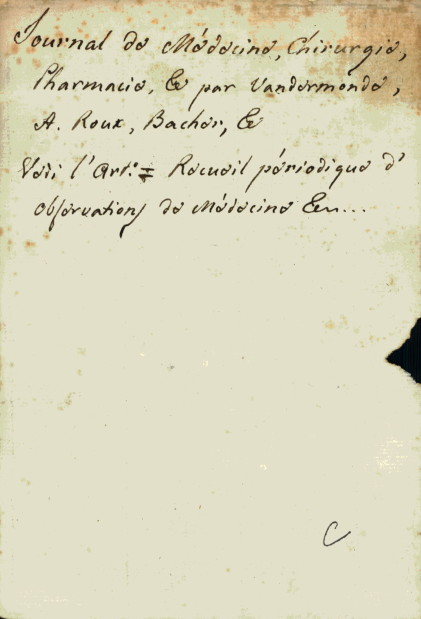 Journal de Médecine, Chirurgie,
Pharmacie, & par Vandermonde,
A. Roux, Bacher, &
Voii l'Art. = Recueil périodique d'
Observations de Médecine &...
C